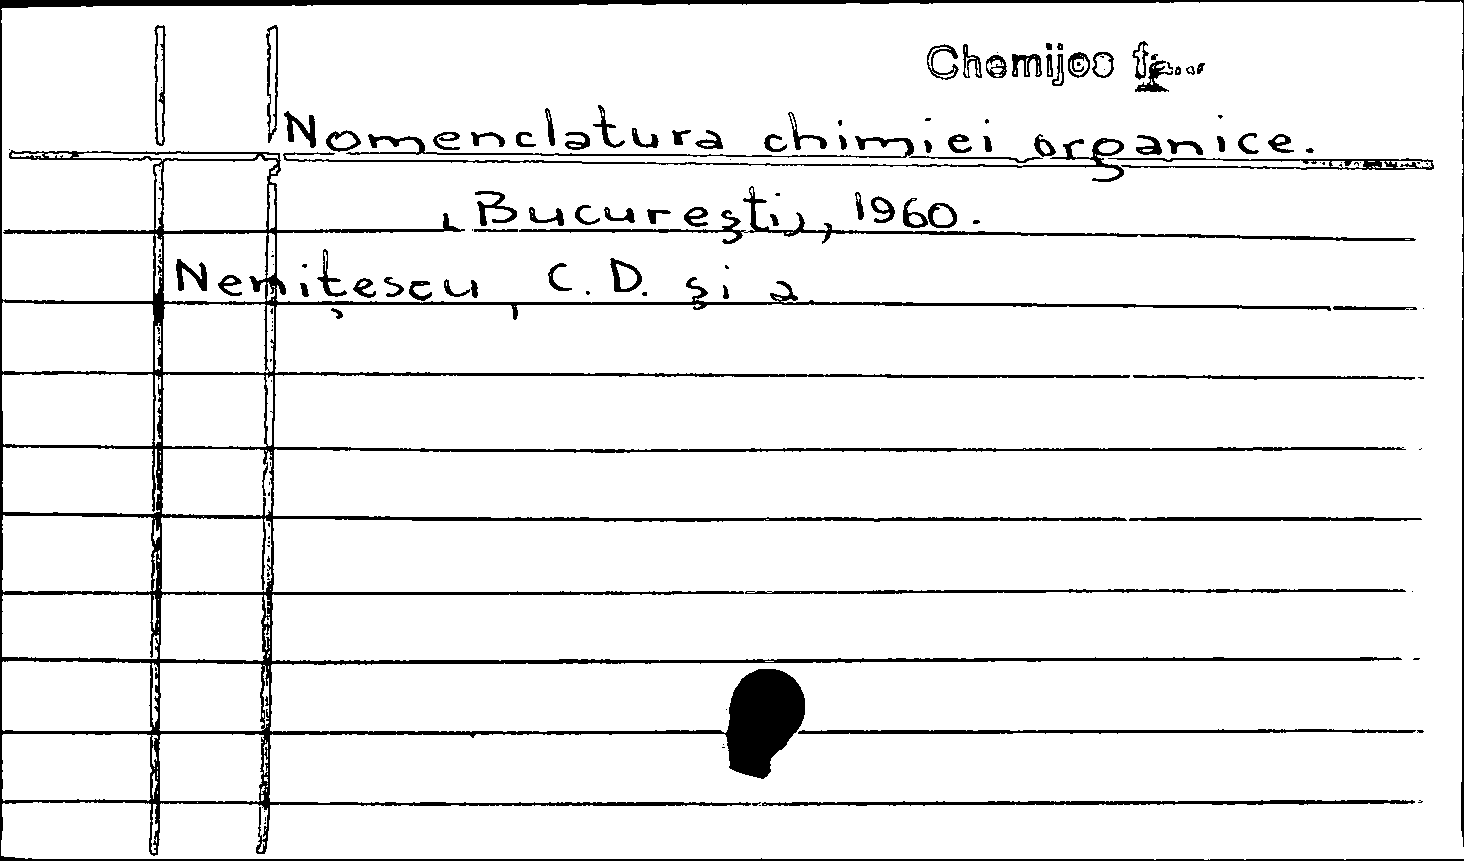 Chemijos
Nomenclatura chimiei organice.
[București], 1960.
Nenițescu, C. D. și a.